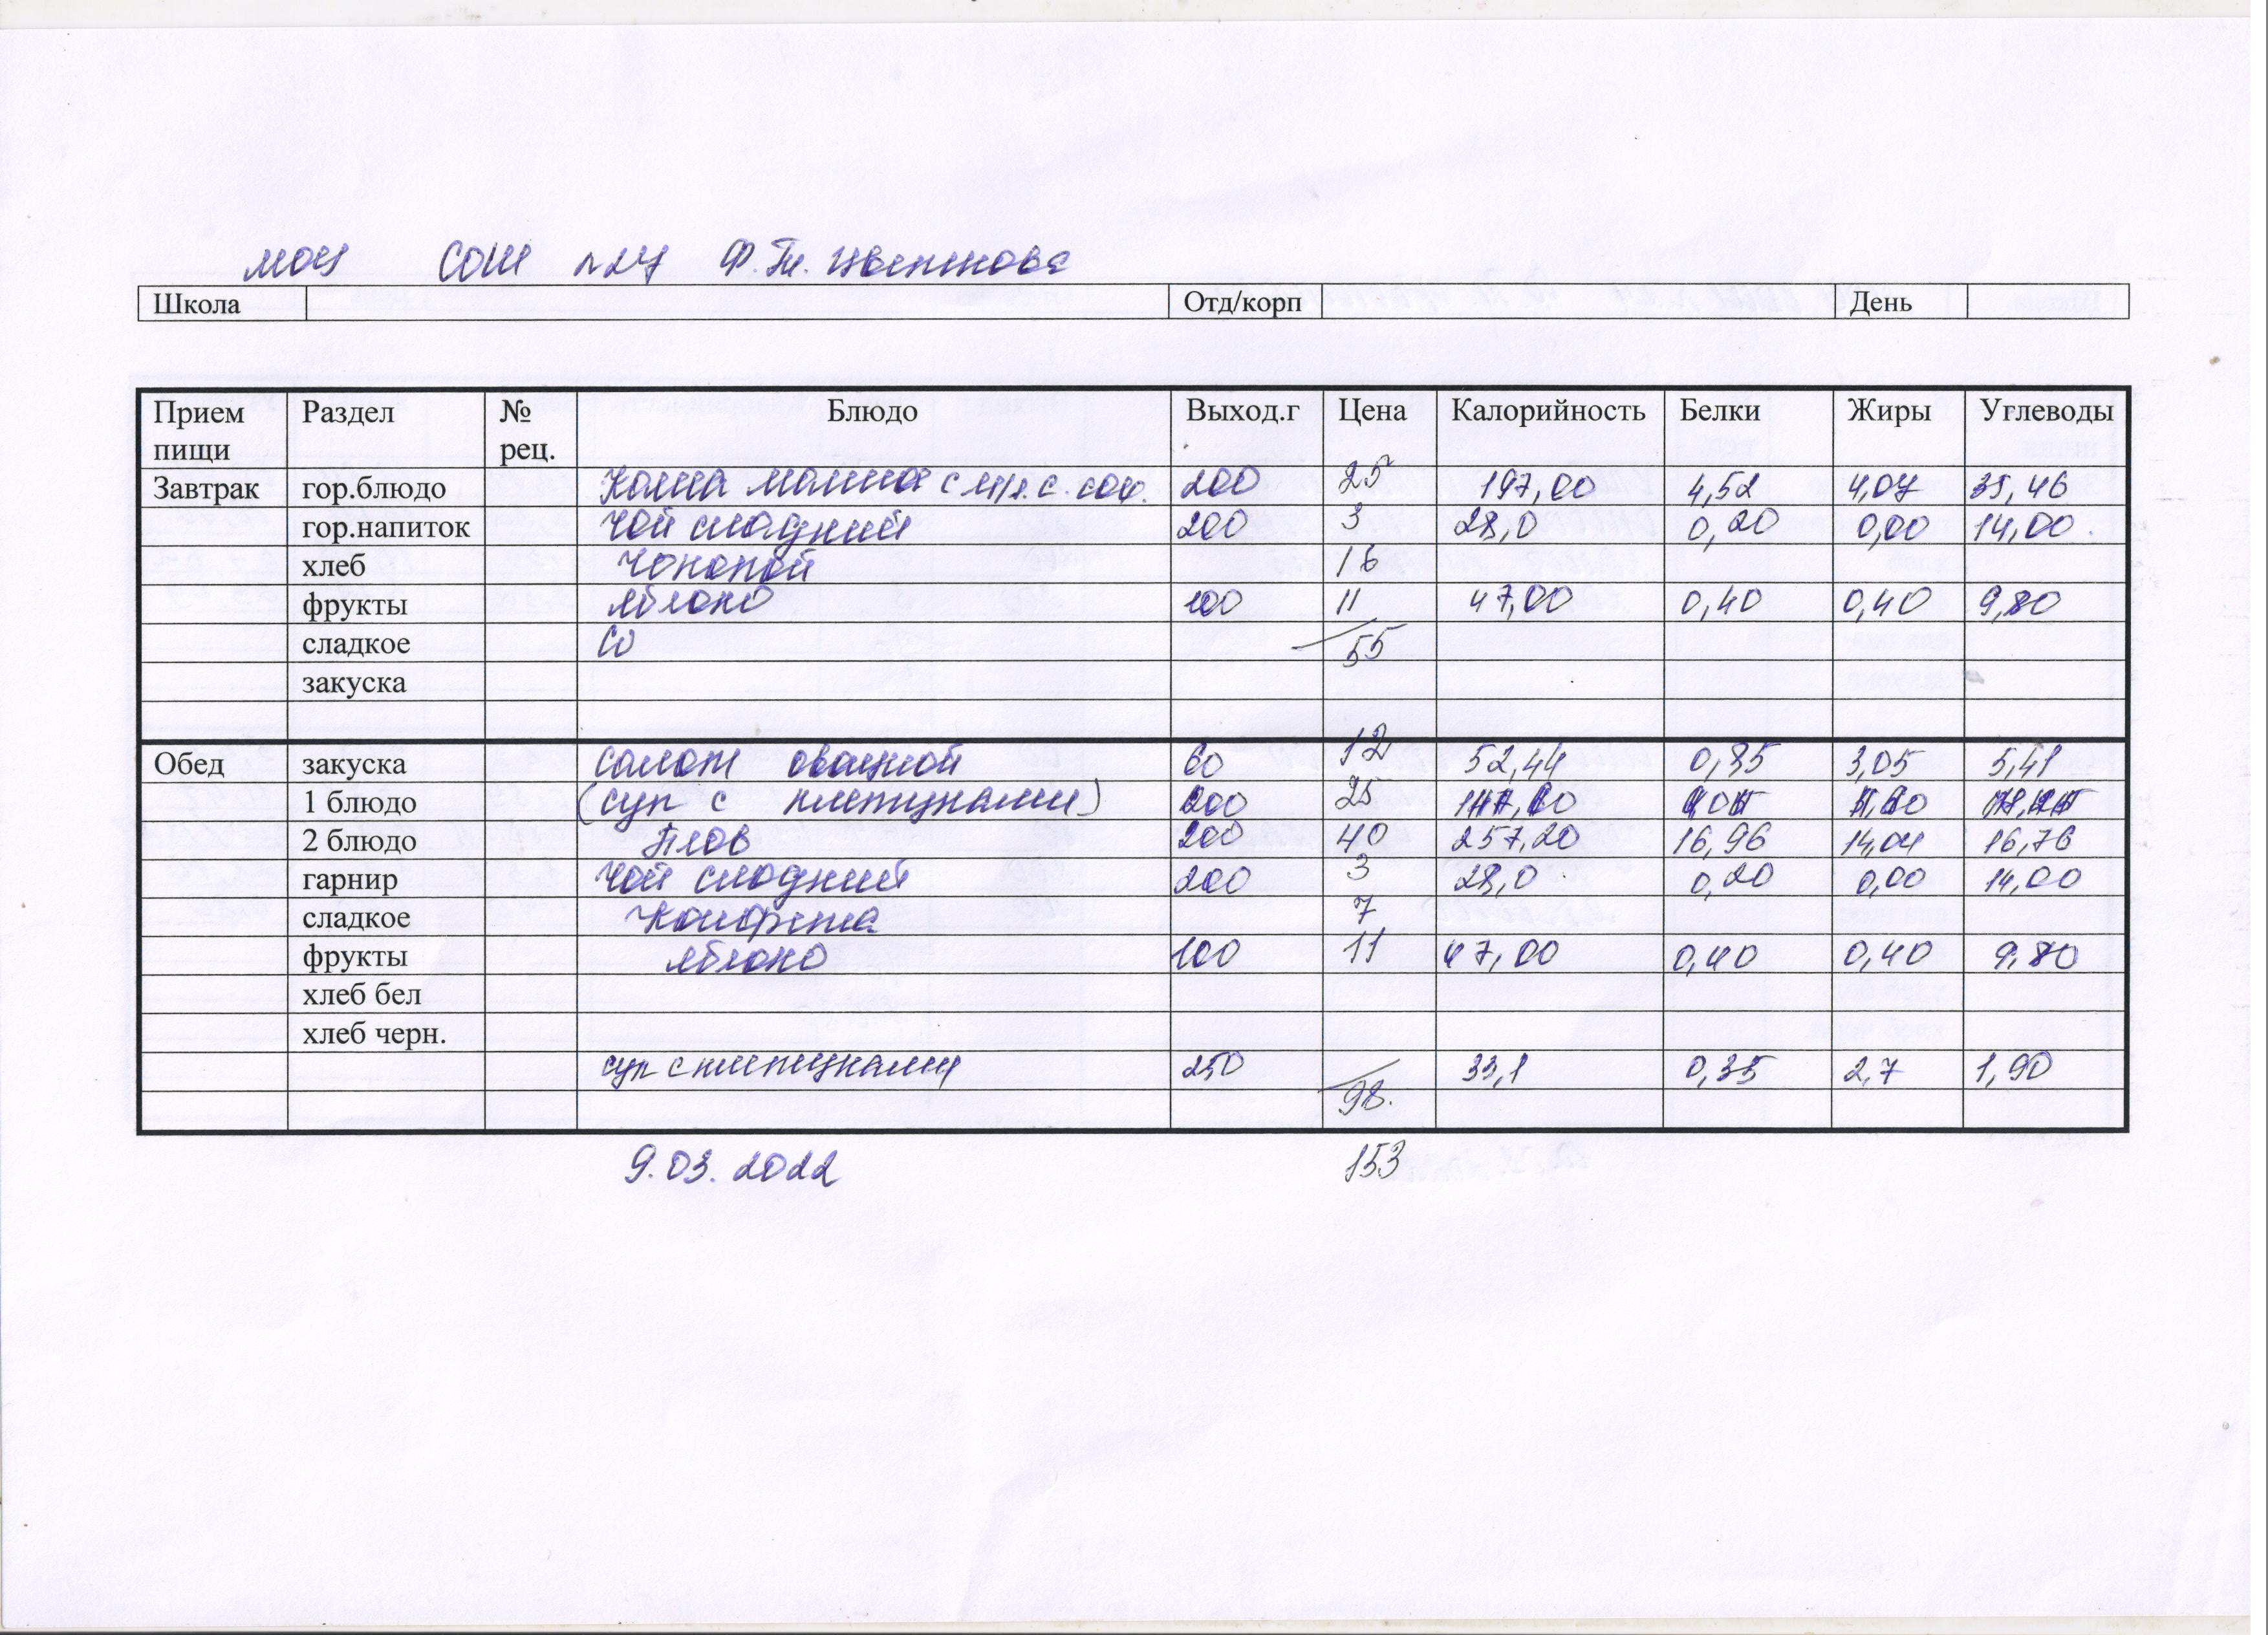 МОУ СОШ №27 Ф.
Школа Отд/корп День
Прием пищи Раздел № рец. Блюдо Выход.г Цена Калорийность Белки Жиры Углеводы
Завтрак гор.блюдо Каша манная с м/л. с. сах. 200 25 197,00 4,52 4,07 35,46
гор.напиток Чай сладкий 200 3 28,0 0,20 0,00 14,00
хлеб Чокопай 16
фрукты яблоко 100 11 47,00 0,40 0,40 9,80
сладкое со 55
закуска
Обед закуска салат овощной 60 12 52,44 0,85 3,05 5,41
1 блюдо (суп с клецками) 200 25
2 блюдо Плов 200 40 257,20 16,96 14,04 16,76
гарнир Чай сладкий 200 3 28,0 0,20 0,00 14,00
сладкое Конфета 7
фрукты яблоко 100 11 47,00 0,40 0,40 9,80
хлеб бел
хлеб черн.
суп с клецками 250 33,1 0,35 2,7 1,90
98.
9.03.2022 153